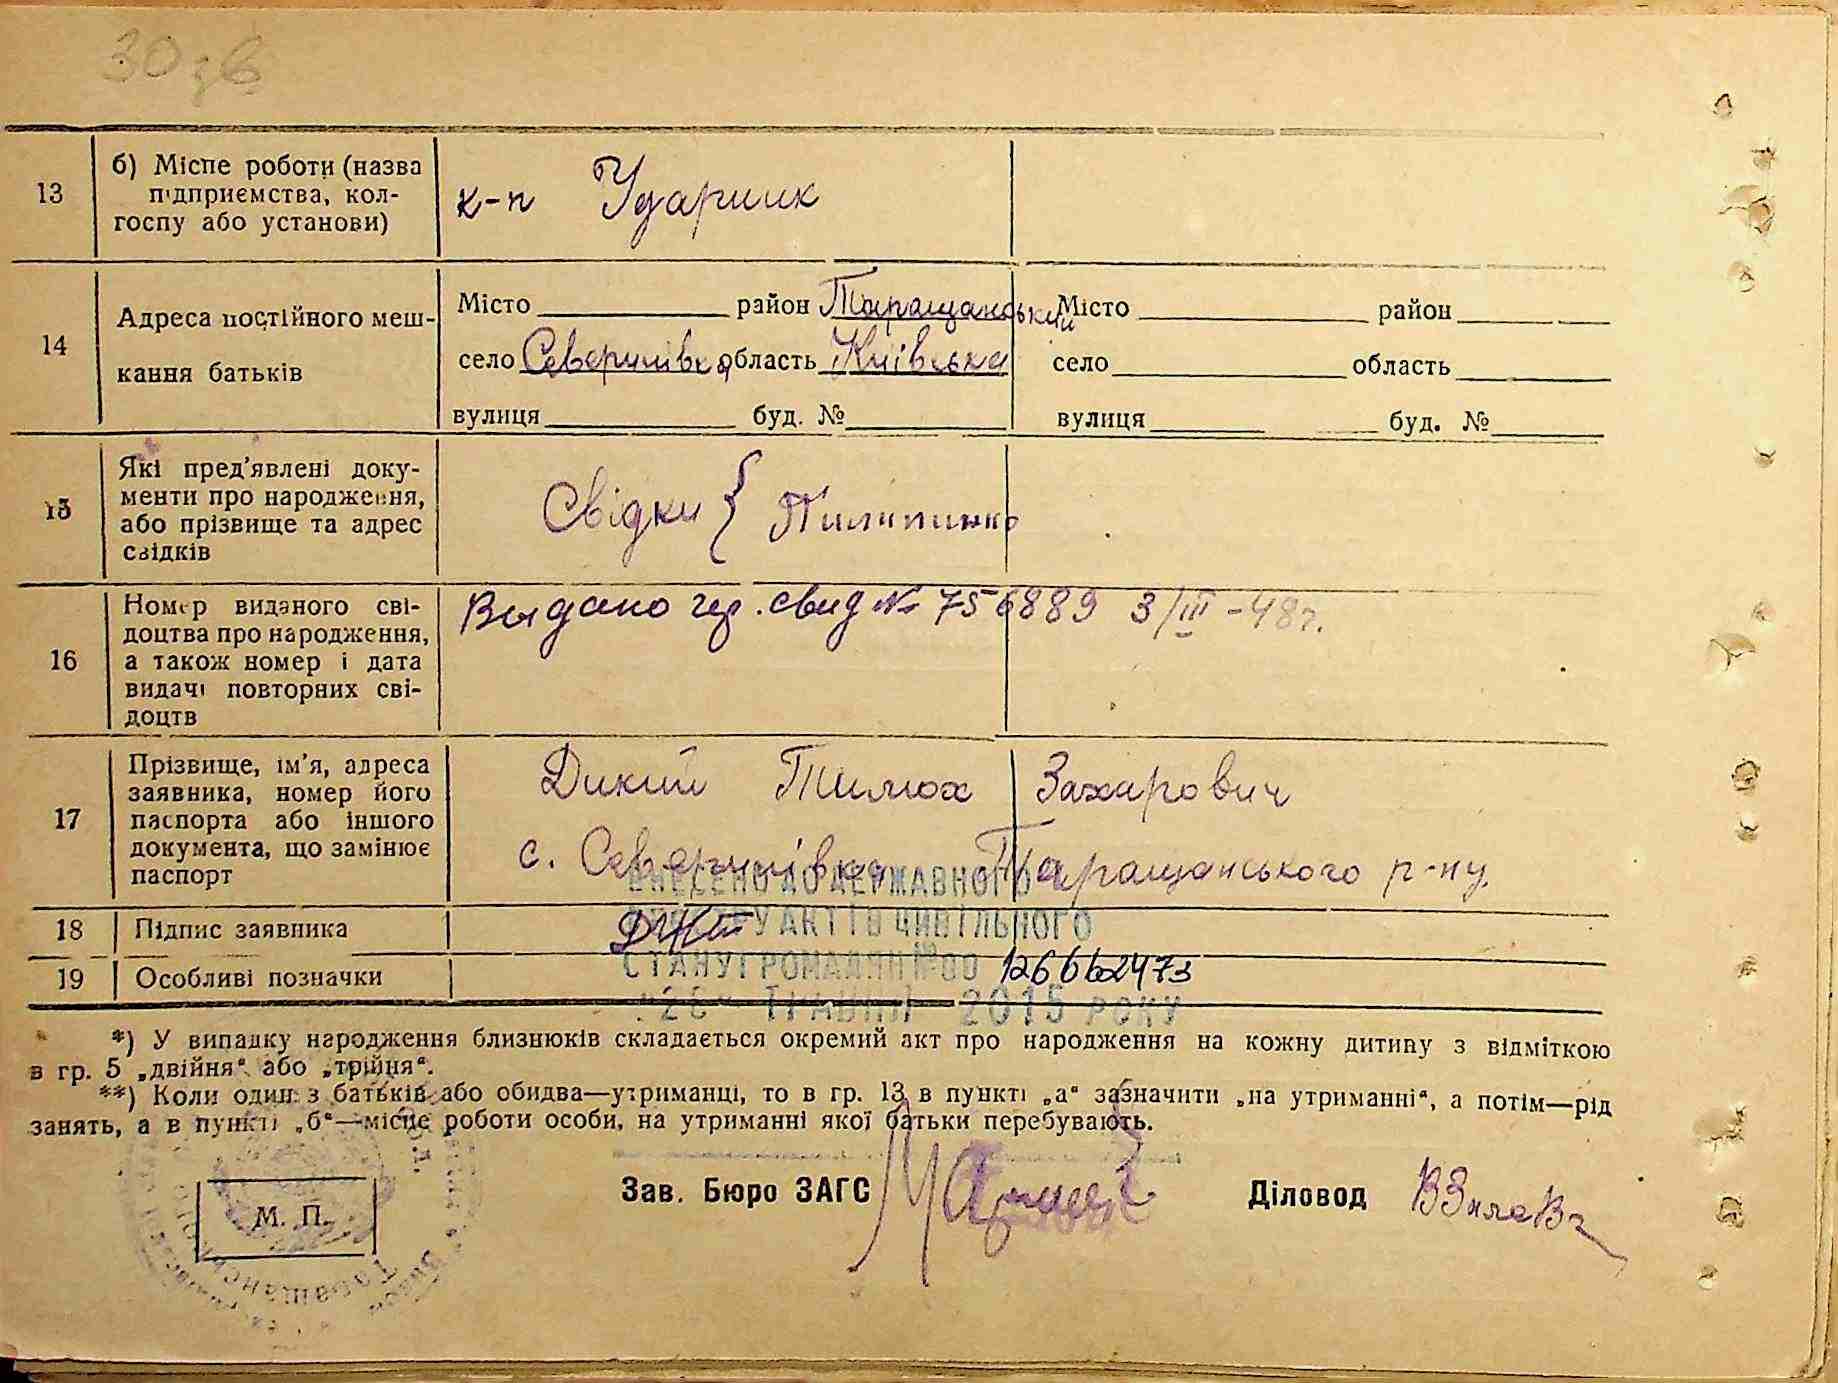 30 зв
13
б) Місце роботи (назва
підприємства, кол-
госпу або установи)
к-п Ударник
14
Адреса постійного меш-
кання батьків
Місто район Таращанський Місто район
село Северинівка область Київська село область
вулиця буд. № вулиця буд. №
15
Які пред'явлені доку-
менти про народження,
або прізвище та адрес
свідків
Свідки { Пилипинко
16
Номер виданого сві-
доцтва про народження,
а також номер і дата
видачі повторних сві-
доцтв
Выдано гер. свид № 756889 3/III-48г.
17
Прізвище, ім'я, адреса
заявника, номер його
паспорта або іншого
документа, що замінює
паспорт
Дикий Тимох Захарович
с. Северинівка Таращанського р-ну
18 Підпис заявника
19 Особливі позначки
ВНЕСЕНО ДО ДЕРЖАВНОГО
РЕЄСТРУ АКТІВ ЦИВІЛЬНОГО
СТАНУ ГРОМАДЯН № 00 126662473
"26" ТРАВНЯ 2015 РОКУ
*) У випадку народження близнюків складається окремий акт про народження на кожну дитину з відміткою
в гр. 5 „двійня“ або „трійня“.
**) Коли один з батьків або обидва—утриманці, то в гр. 13 в пункті „а“ зазначити „на утриманні“, а потім—рід
занять, а в пункті „б“—місце роботи особи, на утриманні якої батьки перебувають.
Зав. Бюро ЗАГС Діловод
М. П.